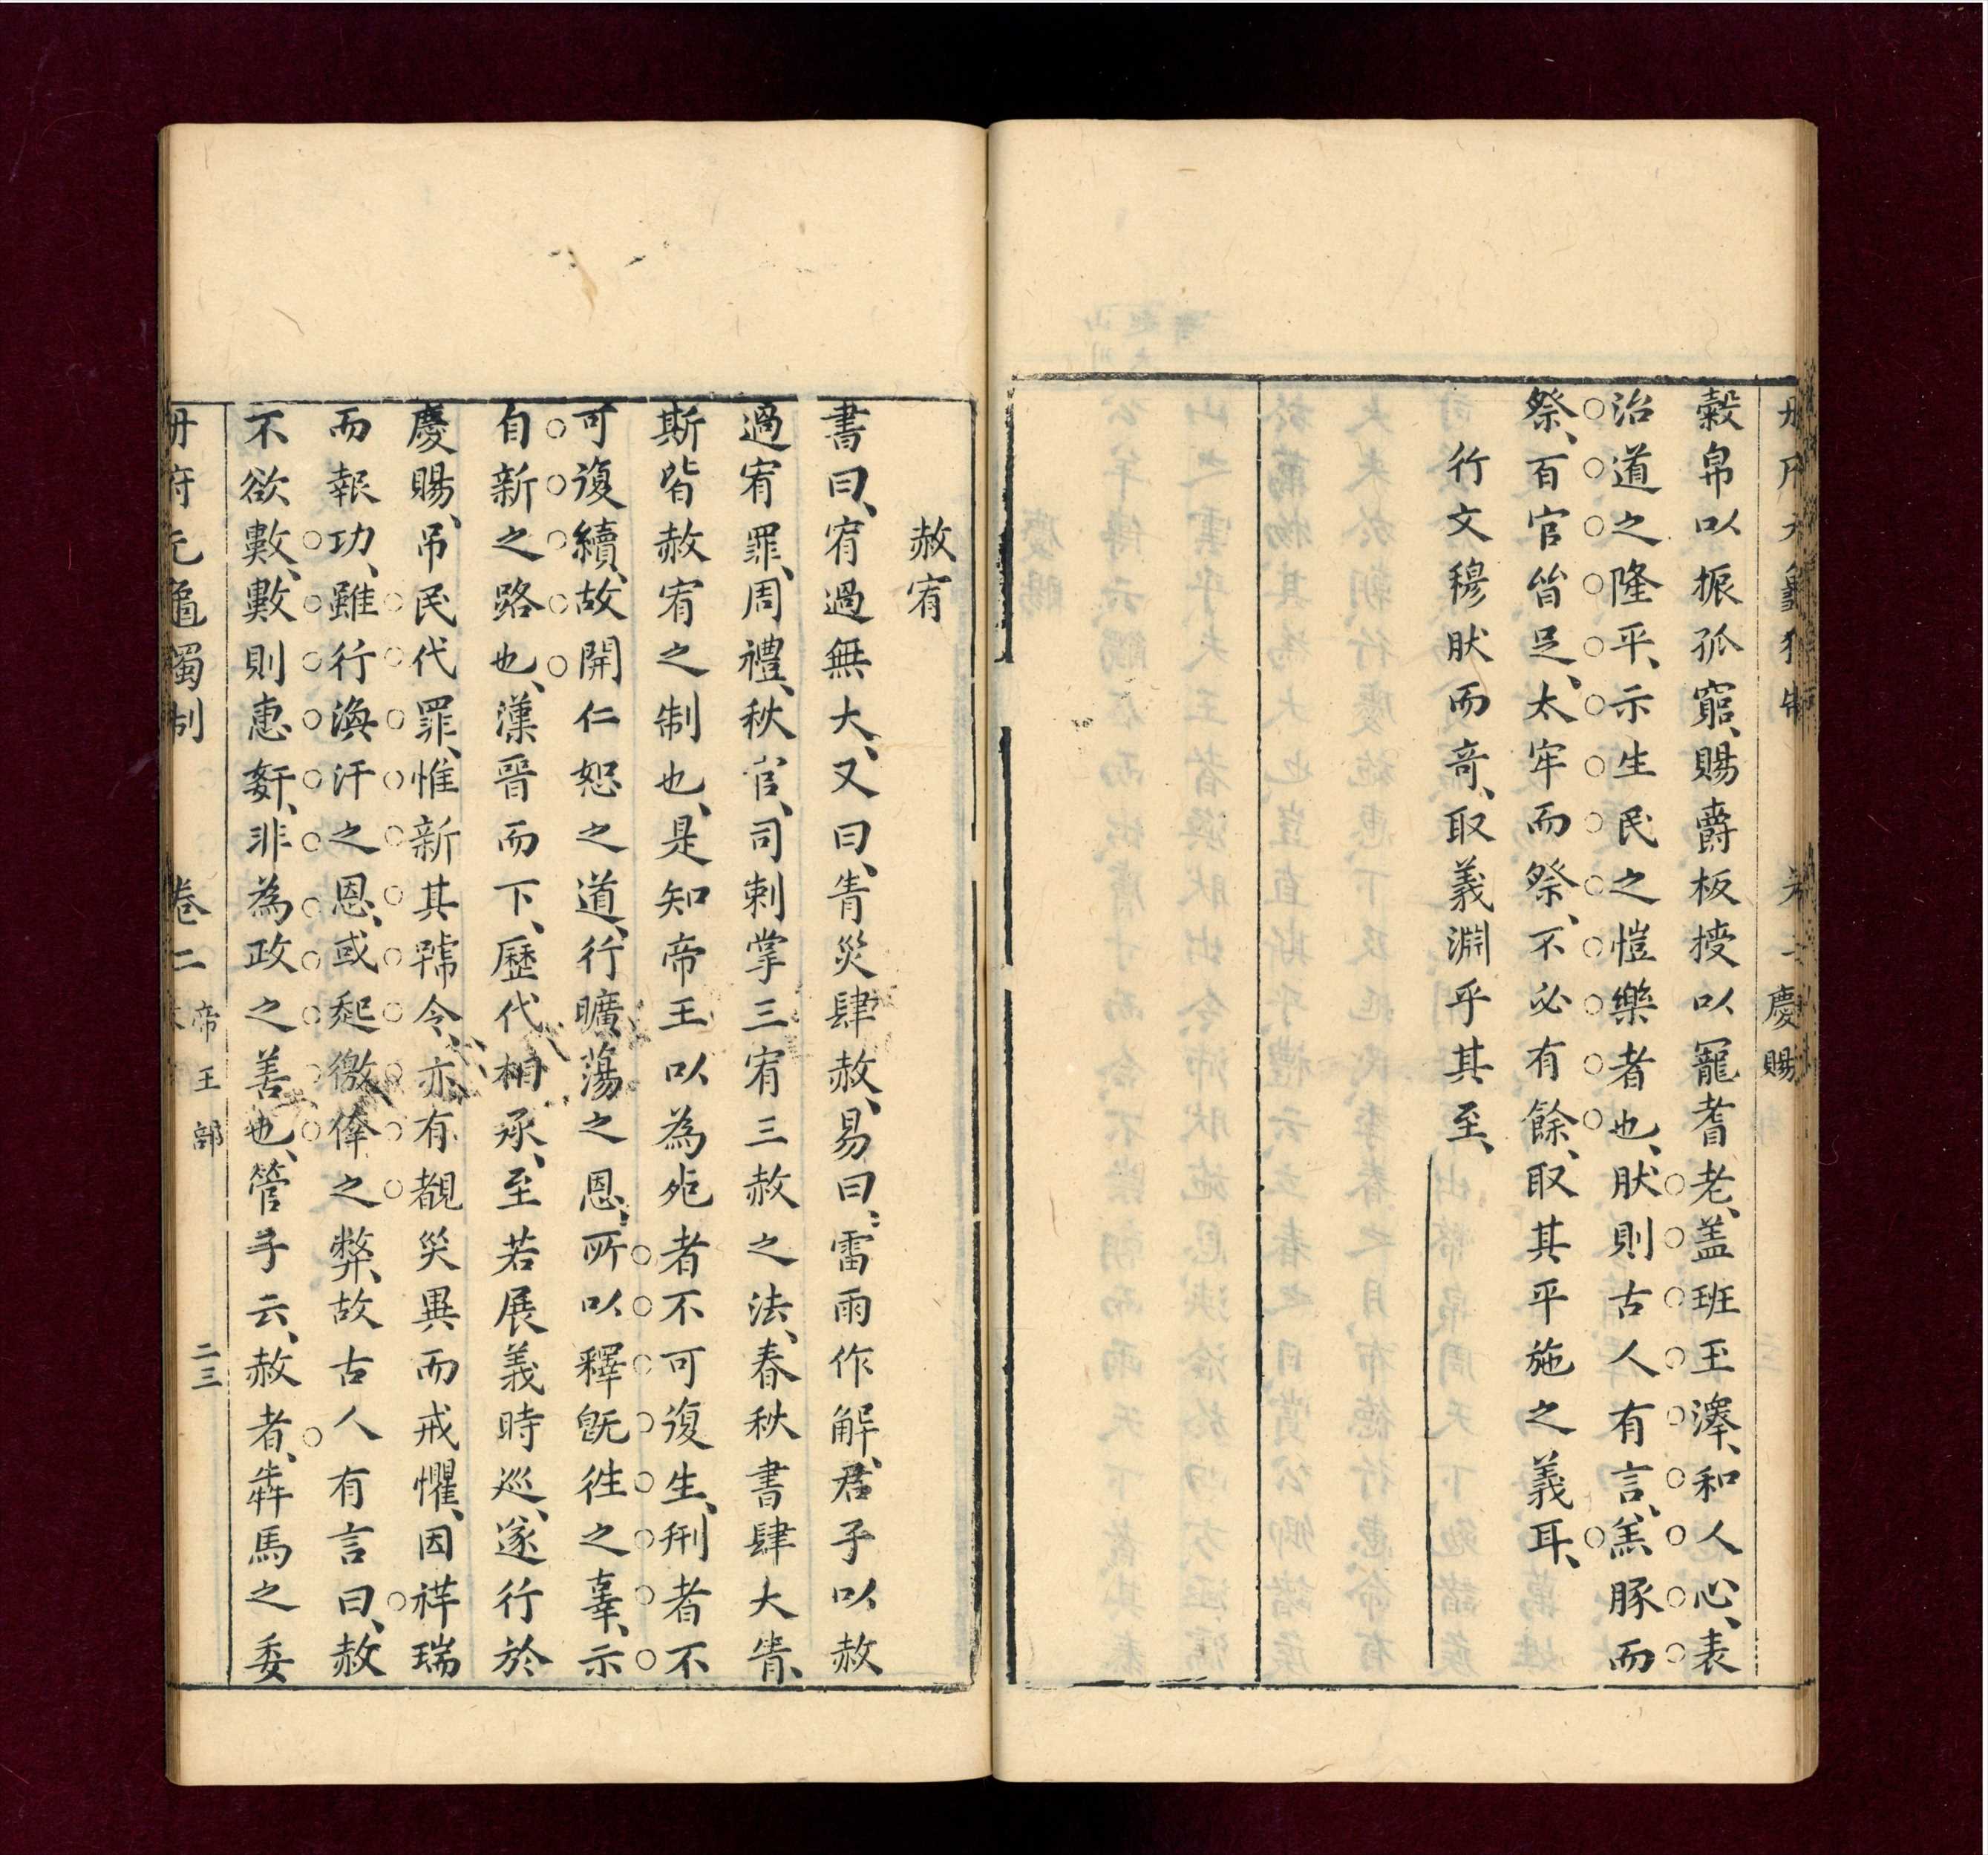 慶賜
穀帛以振孤窮、賜爵板授以寵耆老、盖班王澤、和人心、表
治道之隆平、示生民之愷樂者也、肰則古人有言、羔豚而
祭、百官皆足、太牢而祭、不必有餘、取其平施之義耳、
行文穆肰而竒、取義淵乎其至、
赦宥
書曰、宥過無大、又曰、眚災肆赦、易曰、雷雨作解、君子以赦
過宥罪、周禮、秋官、司刺掌三宥三赦之法、春秋書肆大眚、
斯皆赦宥之制也、是知帝王以為死者不可復生、刑者不
可復續、故開仁恕之道、行曠蕩之恩、所以釋旣徃之辜、示
自新之路也、漢晉而下、歷代相承、至若展義時巡、遂行於
慶賜、吊民代罪、惟新其號令、亦有覩災異而戒懼、因祥瑞
而報功、雖行渙汗之恩、或起徼倖之弊、故古人有言曰、赦
不欲數、數則惠姧、非為政之善也、管子云、赦者、犇馬之委
冊府元龜獨制 卷二 帝王部 二三